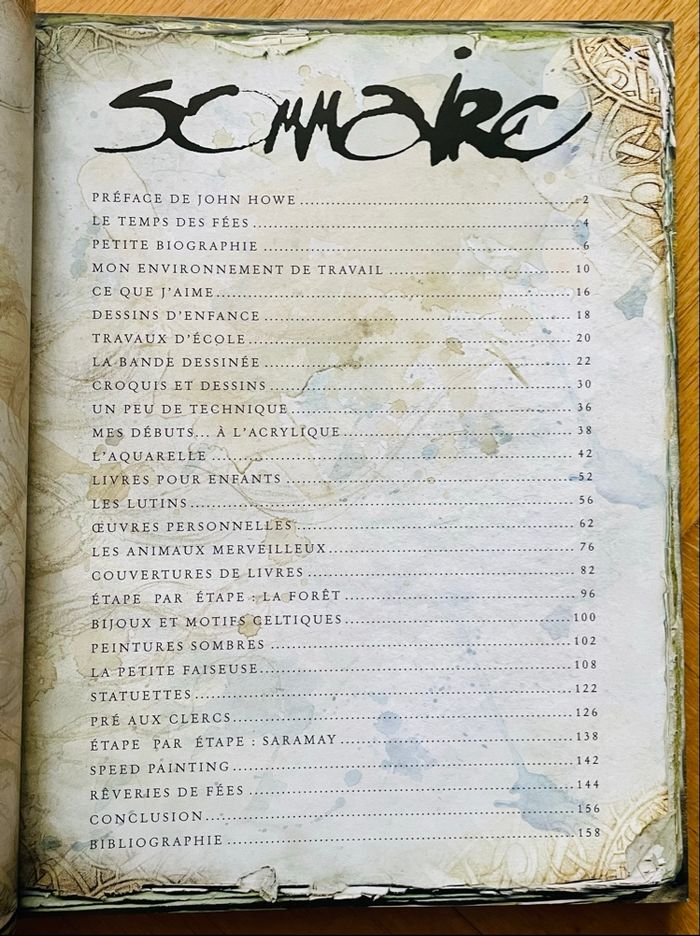 Sommaire
PRÉFACE DE JOHN HOWE 2
LE TEMPS DES FÉES 4
PETITE BIOGRAPHIE 6
MON ENVIRONNEMENT DE TRAVAIL 10
CE QUE J'AIME 16
DESSINS D'ENFANCE 18
TRAVAUX D'ÉCOLE 20
LA BANDE DESSINÉE 22
CROQUIS ET DESSINS 30
UN PEU DE TECHNIQUE 36
MES DÉBUTS... À L'ACRYLIQUE 38
L'AQUARELLE 42
LIVRES POUR ENFANTS 52
LES LUTINS 56
ŒUVRES PERSONNELLES 62
LES ANIMAUX MERVEILLEUX 76
COUVERTURES DE LIVRES 82
ÉTAPE PAR ÉTAPE : LA FORÊT 96
BIJOUX ET MOTIFS CELTIQUES 100
PEINTURES SOMBRES 102
LA PETITE FAISEUSE 108
STATUETTES 122
PRÉ AUX CLERCS 126
ÉTAPE PAR ÉTAPE : SARAMAY 138
SPEED PAINTING 142
RÊVERIES DE FÉES 144
CONCLUSION 156
BIBLIOGRAPHIE 158